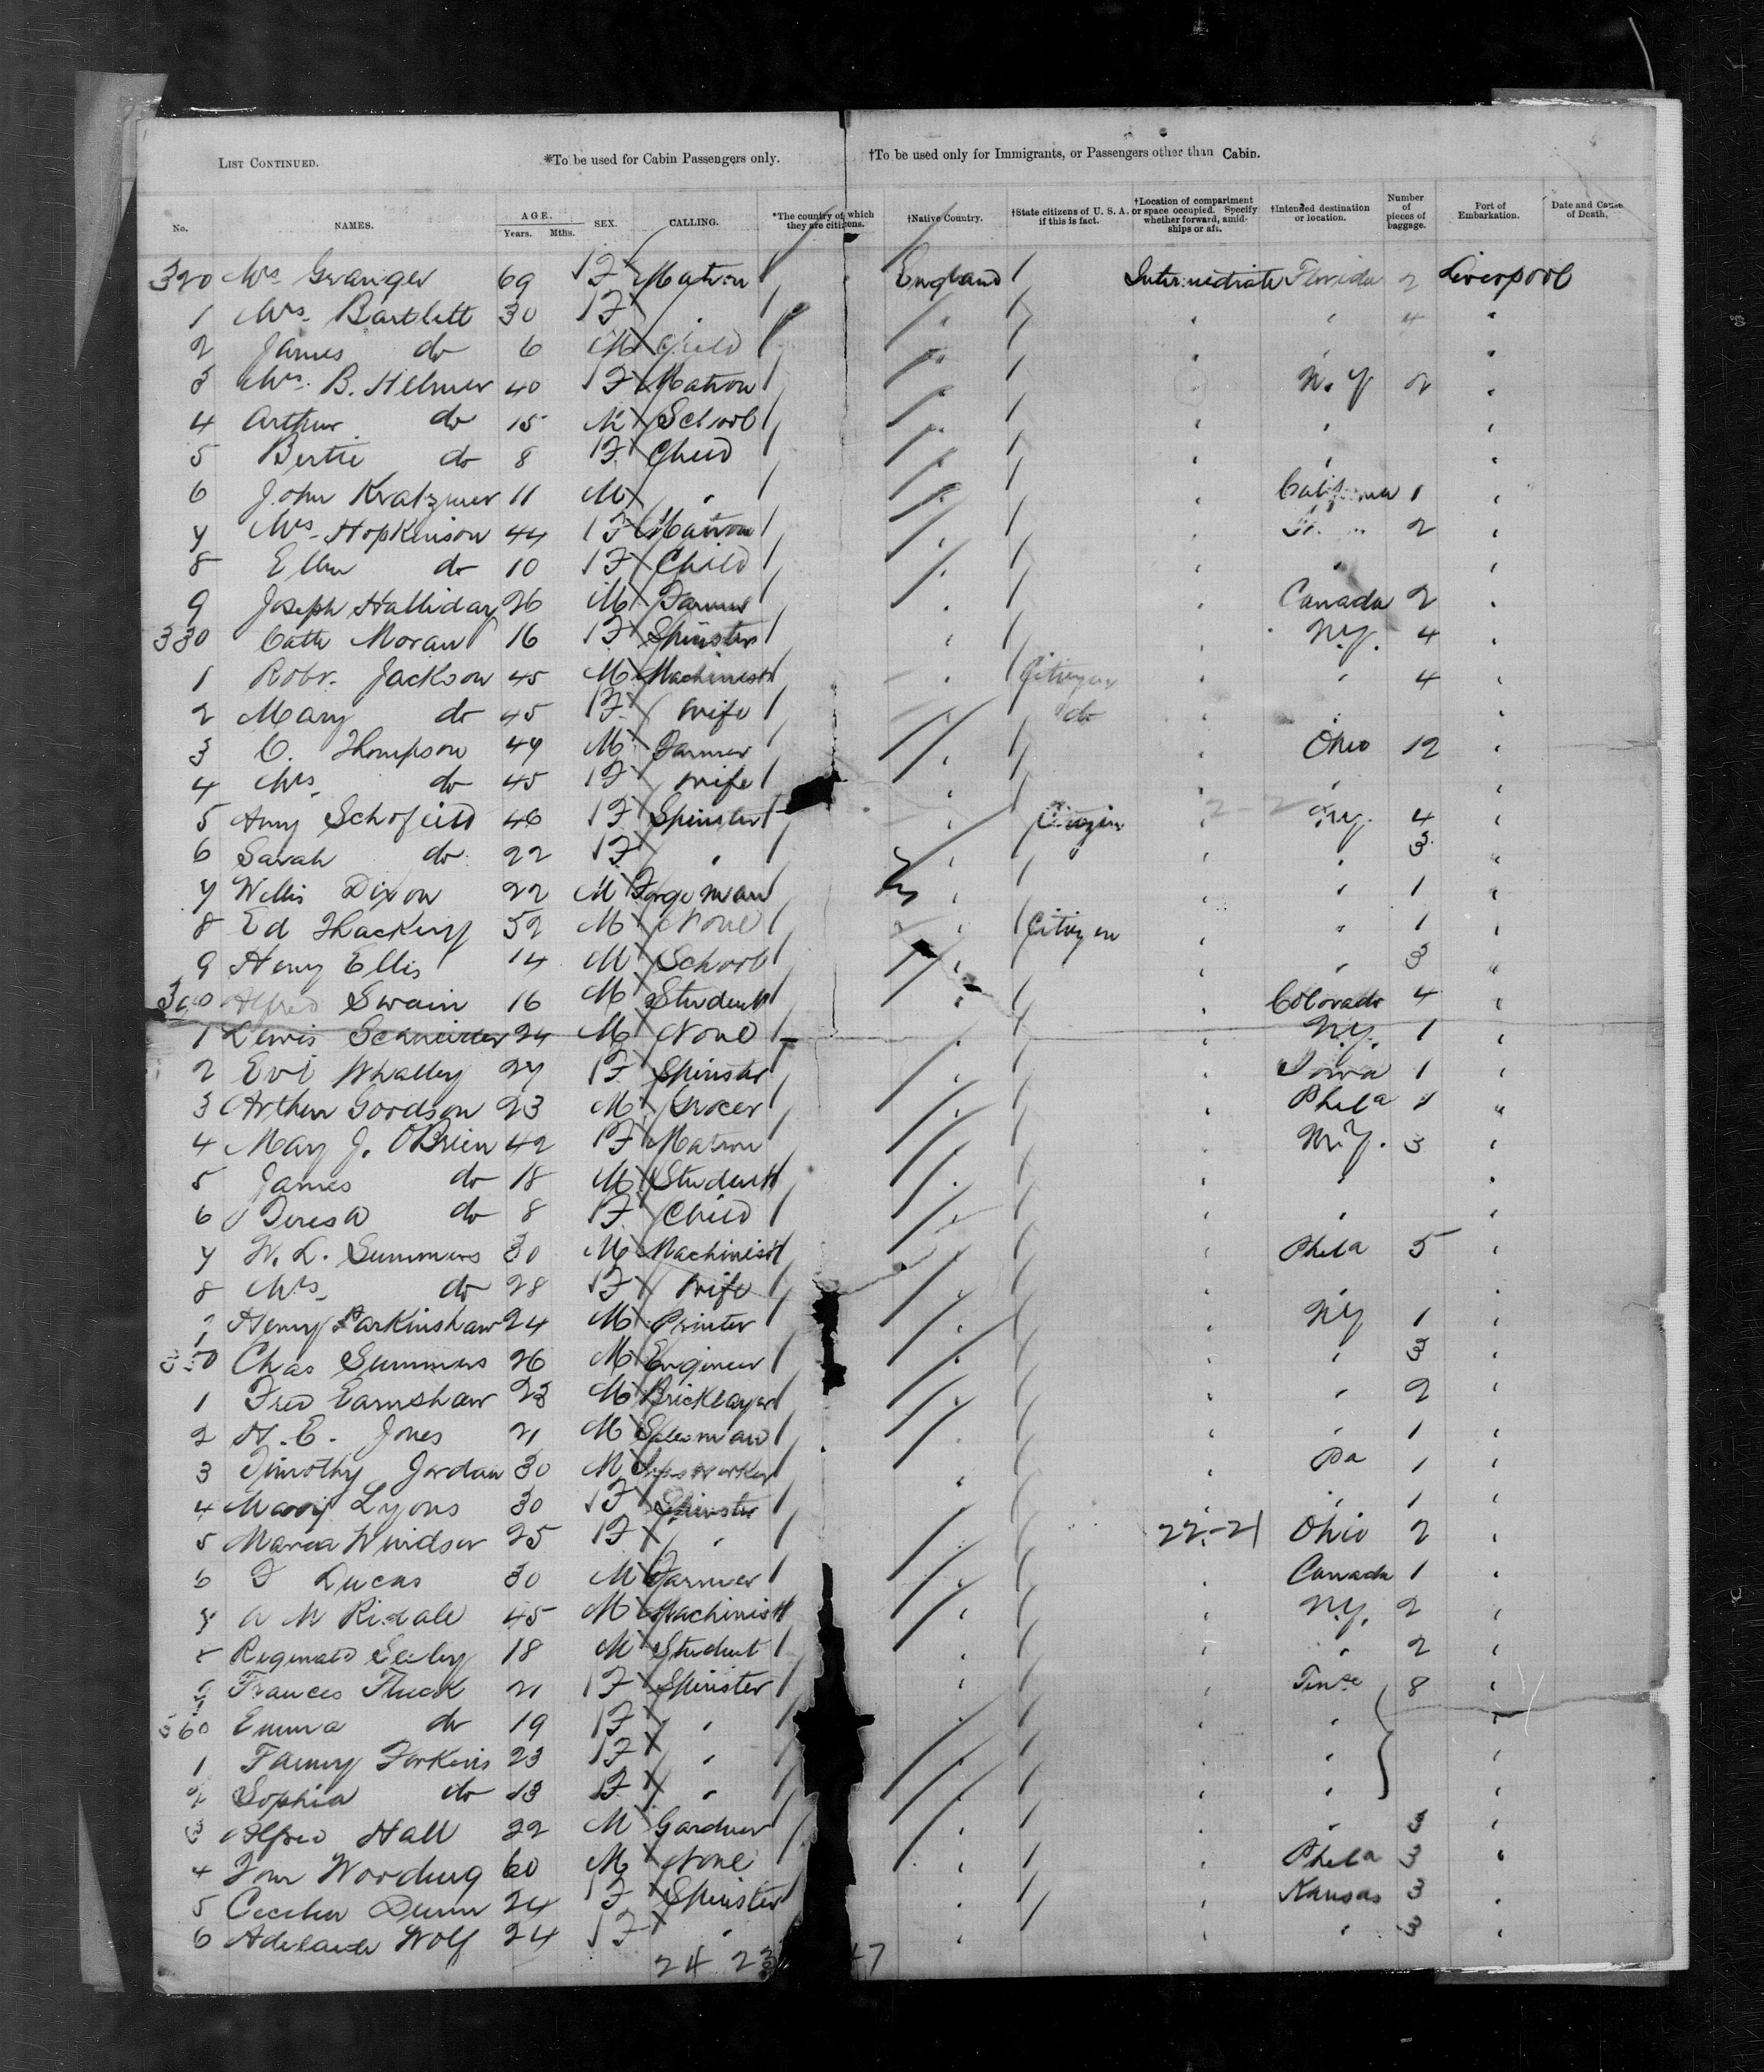 LIST CONTINUED. *To be used for Cabin Passengers only. †To be used only for Immigrants, or Passengers other than Cabin.
No. NAMES. AGE. Years. Mths. SEX. CALLING. *The country of which they are citizens. †Native Country. †State citizens of U. S. A. if this is fact. †Location of compartment or space occupied. Specify whether forward, amidships or aft. †Intended destination or location. Number of pieces of baggage. Port of Embarkation. Date and Cause of Death.
320 Mrs Granger 69 F Matron England Intermediate Florida 2 Liverpool
1 Mrs Bartlett 30 F " " " " 4 "
2 James do 6 M Child " " " "
3 Mrs. B. Helmer 40 F Matron " " N. Y 2 "
4 Arthur do 15 M School " " " "
5 Bertie do 8 F Child " " " "
6 John Kratzmer 11 M " " " California 1 "
7 Mrs Hopkinson 44 F Matron " " 2 "
8 Ellen do 10 F Child " " " "
9 Joseph Halliday 26 M Farmer " " Canada 2 "
330 Cath Moran 16 F Spinster " " N.Y. 4 "
1 Robt. Jackson 45 M Machinist " Citizen " " 4 "
2 Mary do 45 F Wife " do " " "
3 C. Thompson 49 M Farmer " " Ohio 12 "
4 Mrs do 45 F Wife " " " "
5 Amy Schofield 46 F Spinster " Citizen " N.Y. 4 "
6 Sarah do 22 F " " " " 3 "
7 Willis Dixon 22 M Forgeman " " " 1 "
8 Ed Thackery 52 M None " Citizen " " 1 "
9 Henry Ellis 14 M School " " " 3 "
340 Alfred Swain 16 M Student " " Colorado 4 "
1 Lewis Schneider 24 M None " " N.Y. 1 "
2 Evl Whalley 27 F Spinster " " Iowa 1 "
3 Arthur Goodson 23 M Grocer " " Phila 1 "
4 Mary J. OBrien 42 F Matron " " N.Y. 3 "
5 James do 18 M Student " " " "
6 Teresa do 8 F Child " " " "
7 W. L. Summers 30 M Machinist " " Phila 5 "
8 Mrs do 28 F Wife " " " "
9 Henry Parkinshaw 24 M Printer " " NY 1 "
350 Chas Summers 26 M Engineer " " " 3 "
1 Fred Earnshaw 23 M Bricklayer " " " 2 "
2 H. C. Jones 21 M Salesman " " " 1 "
3 Timothy Jordan 30 M " " Pa 1 "
4 Mary Lyons 30 F Spinster " " " 1 "
5 Maria Windsor 25 F " " 22-21 Ohio 2 "
6 T Lucas 30 M Farmer " " Canada 1 "
7 A M Risdale 45 M Machinist " " N.Y. 2 "
8 Reginald 18 M Student " " " 2 "
9 Frances Fluck 21 F Spinster " " 8 "
360 Emma do 19 F " " " " "
1 Fanny Forkins 23 F " " " " "
2 Sophia do 13 F " " " " "
3 Alfred Hall 22 M Gardner " " " 3 "
4 Tom Wooding 60 M None " " Phila 3 "
5 Cecelia Dunn 24 F Spinster " " Kansas 3 "
6 Adelaide Wolf 24 F " " " " 3 "
24 23 47